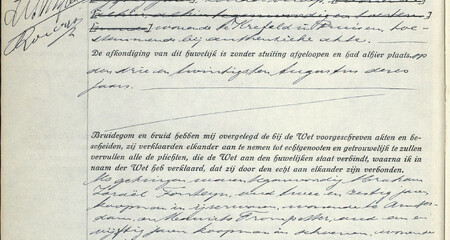 wonende te Krefeld in Pruisen, toe-
stemmende bij authentieke akte.
De afkondiging van dit huwelijk is zonder stuiting afgeloopen en had alhier plaats op
den drie en twintigsten Augustus dezes
jaars.
Bruidegom en bruid hebben mij overgelegd de bij de Wet voorgeschreven akten en be-
scheiden, zij verklaarden elkander aan te nemen tot echtgenooten en getrouwelijk te zullen
vervullen alle de plichten, die de Wet aan den huwelijken staat verbindt, waarna ik
in naam der Wet heb verklaard, dat zij door den echt aan elkander zijn verbonden.
Als getuigen waren tegenwoordig Abraham
Israël oud twee en zestig jaren
koopman in ijzerwaren, wonende te Amster-
dam, en Trompetter, oud een en
vijftig jaren koopman in schoenen, wonende